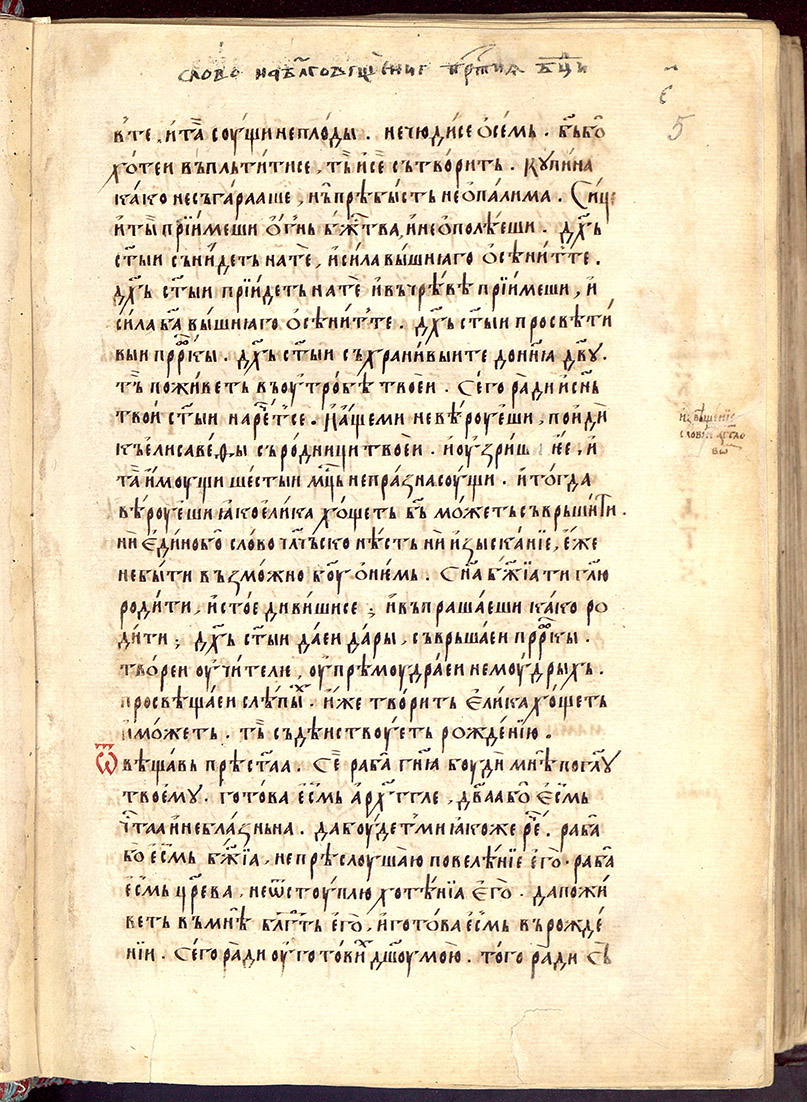 слово на бл҃говѣщение прⷭ҇тиѧ бц҃и
е҃
5
вⸯте, и҆та̀ соу́щи неплоды. нечюди́се ѡ҆семь. бг҃ь бѡ̀
хо́теи вьпльти́тисе, тъ̀ и҆сѐ сътво́рить. Кꙋпи́на
ка́ко несъга́рааше, нъ̀прѣбы́сть нео̀пали́ма. Си́це
и҆ты̀ прїи́меши ѻ҆́гнь бж҃тва, и҆нео̀полѣ́еши. дх҃ь
ст҃ыи съни́деть натѐ, и҆си́ла вы́шнꙗго ѡ҆сѣни́тⸯте.
дх҃ь ст҃ыи прїи́деть натѐ и҆вьчрѣ́вѣ прїи́меши, и҆
си́ла ба҃ вы́шнꙗго ѡ҆сѣни́тⸯте. дх҃ь ст҃ыи просвѣти́
выи прⷪ҇ркы. дх҃ь ст҃ыи съхрани́выите донн҃ꙗ дв҃ꙋ.
тъ̀ поживе́ть въоу҆тро́бѣ твое́и. Сего̀ ра́ди и҆сн҃ь
твои ст҃ыи наре́тⸯсе. И҆а҆́щеми невѣ́роуеши, пои҆дѝ
къе҆лисаве́ѳы съро́дници твое́и. и҆оу҆́зриши и҆ ѥ҆́е, и҆
та̀ и҆моу́щи ше́стыи мцⷭ҇ь непра́знасоущи. и҆тогда
вѣ́роуеши ꙗ҆коѥ҆ли́ка хо́щеть бг҃ь мо́жеть съвръши́ти.
нѝ ѥ҆ди́нобѡ̀ сло́во чл҃чьско нѣ́сть нѝ и҆зыска́нїе, ѥ҆́же
небы́ти възмо́жно бг҃оу ѻ҆ни́мь. Сн҃а бж҃їа ти гл҃ю
роди́ти, и҆сто́е диви́шисе ; и҆въпраша́еши ка́ко ро
ди́ти ; дх҃ь ст҃ыи да́еи да́ры, съврьша́еи прⷪ҇ркы.
тво́реи оу҆чи́телѥ, оу҆прѣмоу́драеи немоу́дрыхь.
просвѣща́еи слѣпы́ⷯ. и҆́же твори́ть ѥ҆ли́ка хо́щеть
и҆мо́жеть. тъ̀ съдѣ́иствоуеть рожде́нїю.
Ѿвѣща́вь прѣста҃а. Сѐ раба̀ гн҃ꙗ боу́ди мнѣ̀ погл҃ꙋ
твоемꙋ. гото́ва е҆́смь а҆рхⷢ҇гле, дв҃аабѡ̀ ѥ҆́смь
чⷭ҇таа и҆небла́зньна. дабоу́детⸯми ꙗ҆коже рѐ. раба̀
бѡ̀ ѥ҆́смь бж҃їа, непрѣслоуша́ю повелѣ́нїе ѥ҆го̀. раба̀
ѥ҆́смь цр҃ева, неѿстоуплю̀ хотѣ́нїа ѥ҆го̀. дапожи
веть въмнѣ̀ блгⷣть ѥ҆го̀, и҆гото́ва ѥ҆́смь върожде́
нїи. Сего̀ ра́ди оу҆гото́виⷯ дш҃оу мою̀. того̀ ра́ди съ
и҆звѣщенїе
слове а҆гг҃ло
вѡ